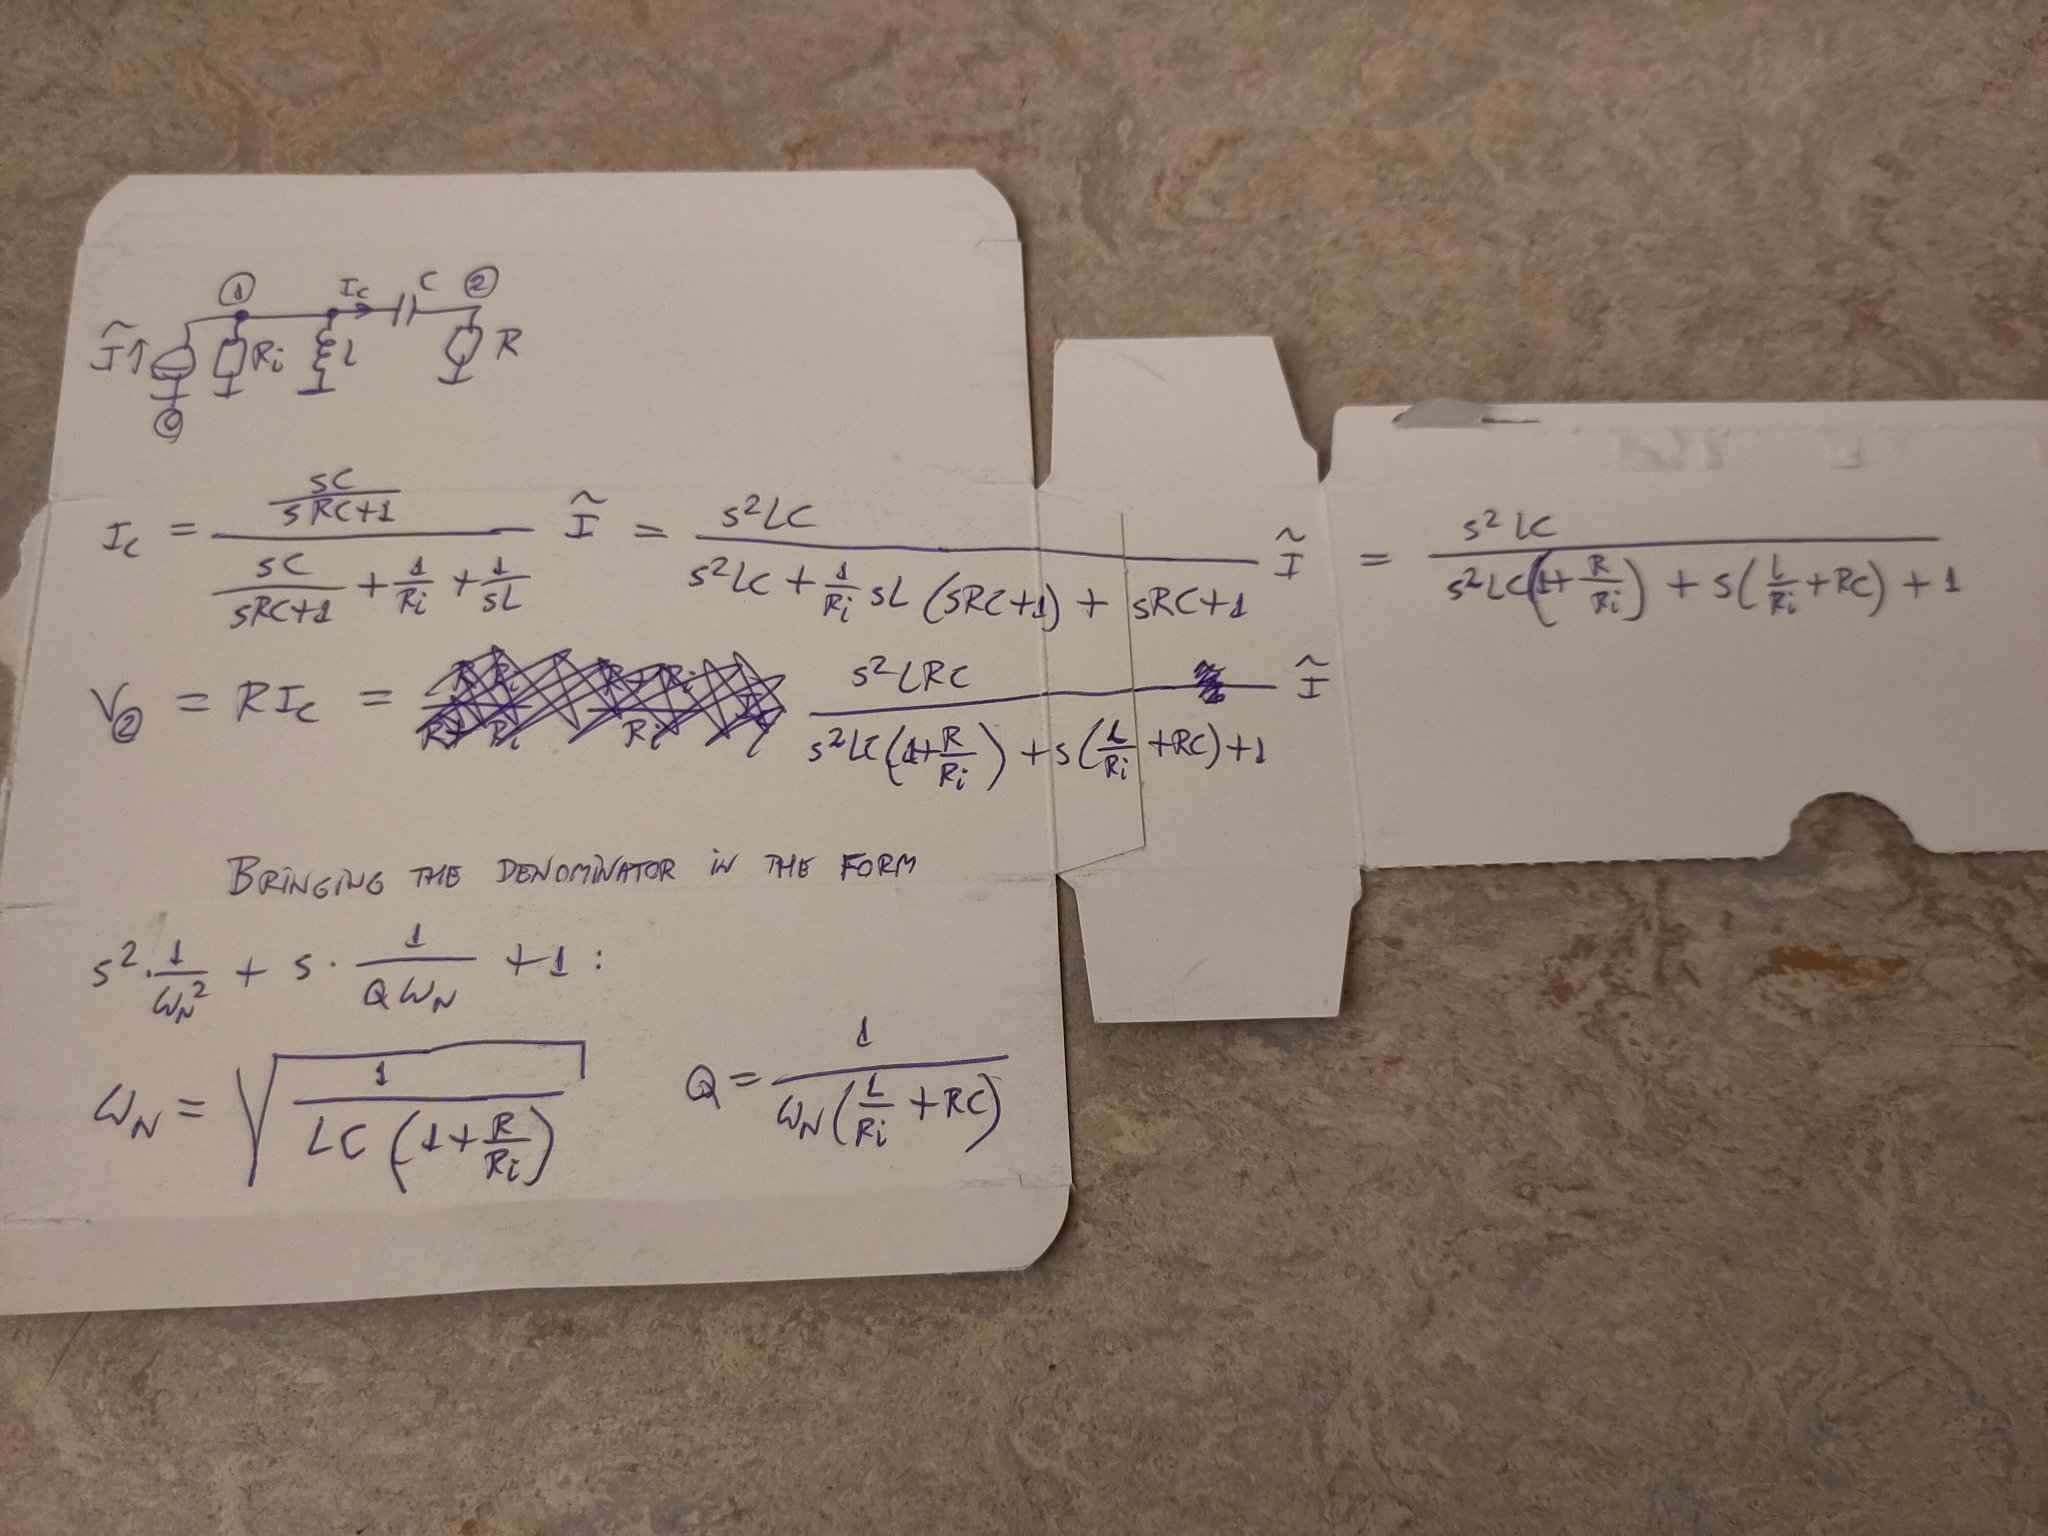 ① I_C C ②
Ĩ↑ R_i L R
⓪
I_C = (sC/(sRC+1)) / (sC/(sRC+1) + 1/R_i + 1/(sL)) Ĩ = s²LC / (s²LC + 1/R_i sL (sRC+1) + sRC+1) Ĩ = s²LC / (s²LC(1+R/R_i) + s(L/R_i + RC) + 1)
V_② = R I_C = s²LRC / (s²LC(1+R/R_i) + s(L/R_i + RC) + 1) Ĩ
BRINGING THE DENOMINATOR IN THE FORM
s²·1/ω_N² + s·1/(Qω_N) + 1 :
ω_N = √(1/(LC(1+R/R_i))) Q = 1/(ω_N(L/R_i + RC))